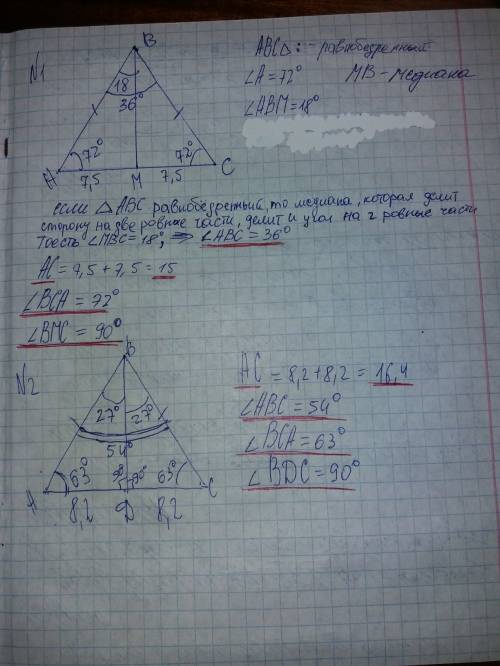 N1
B
18
36°
72°
72°
A
7,5
M
7,5
C
ABC△: - равнобедренный
∠A = 72°
MB - медиана
∠ABM = 18°
если △ ABC равнобедренный, то медиана, которая делит
сторону на две ровные части, делит и угол на 2 ровные части
Тоесть ∠MBC = 18°, ⇒ ∠ABC = 36°
AC = 7,5 + 7,5 = 15
∠BCA = 72°
∠BMC = 90°
N2
B
27°
27°
54°
63°
90°
90°
63°
A
8,2
D
8,2
C
AC = 8,2 + 8,2 = 16,4
∠ABC = 54°
∠BCA = 63°
∠BDC = 90°